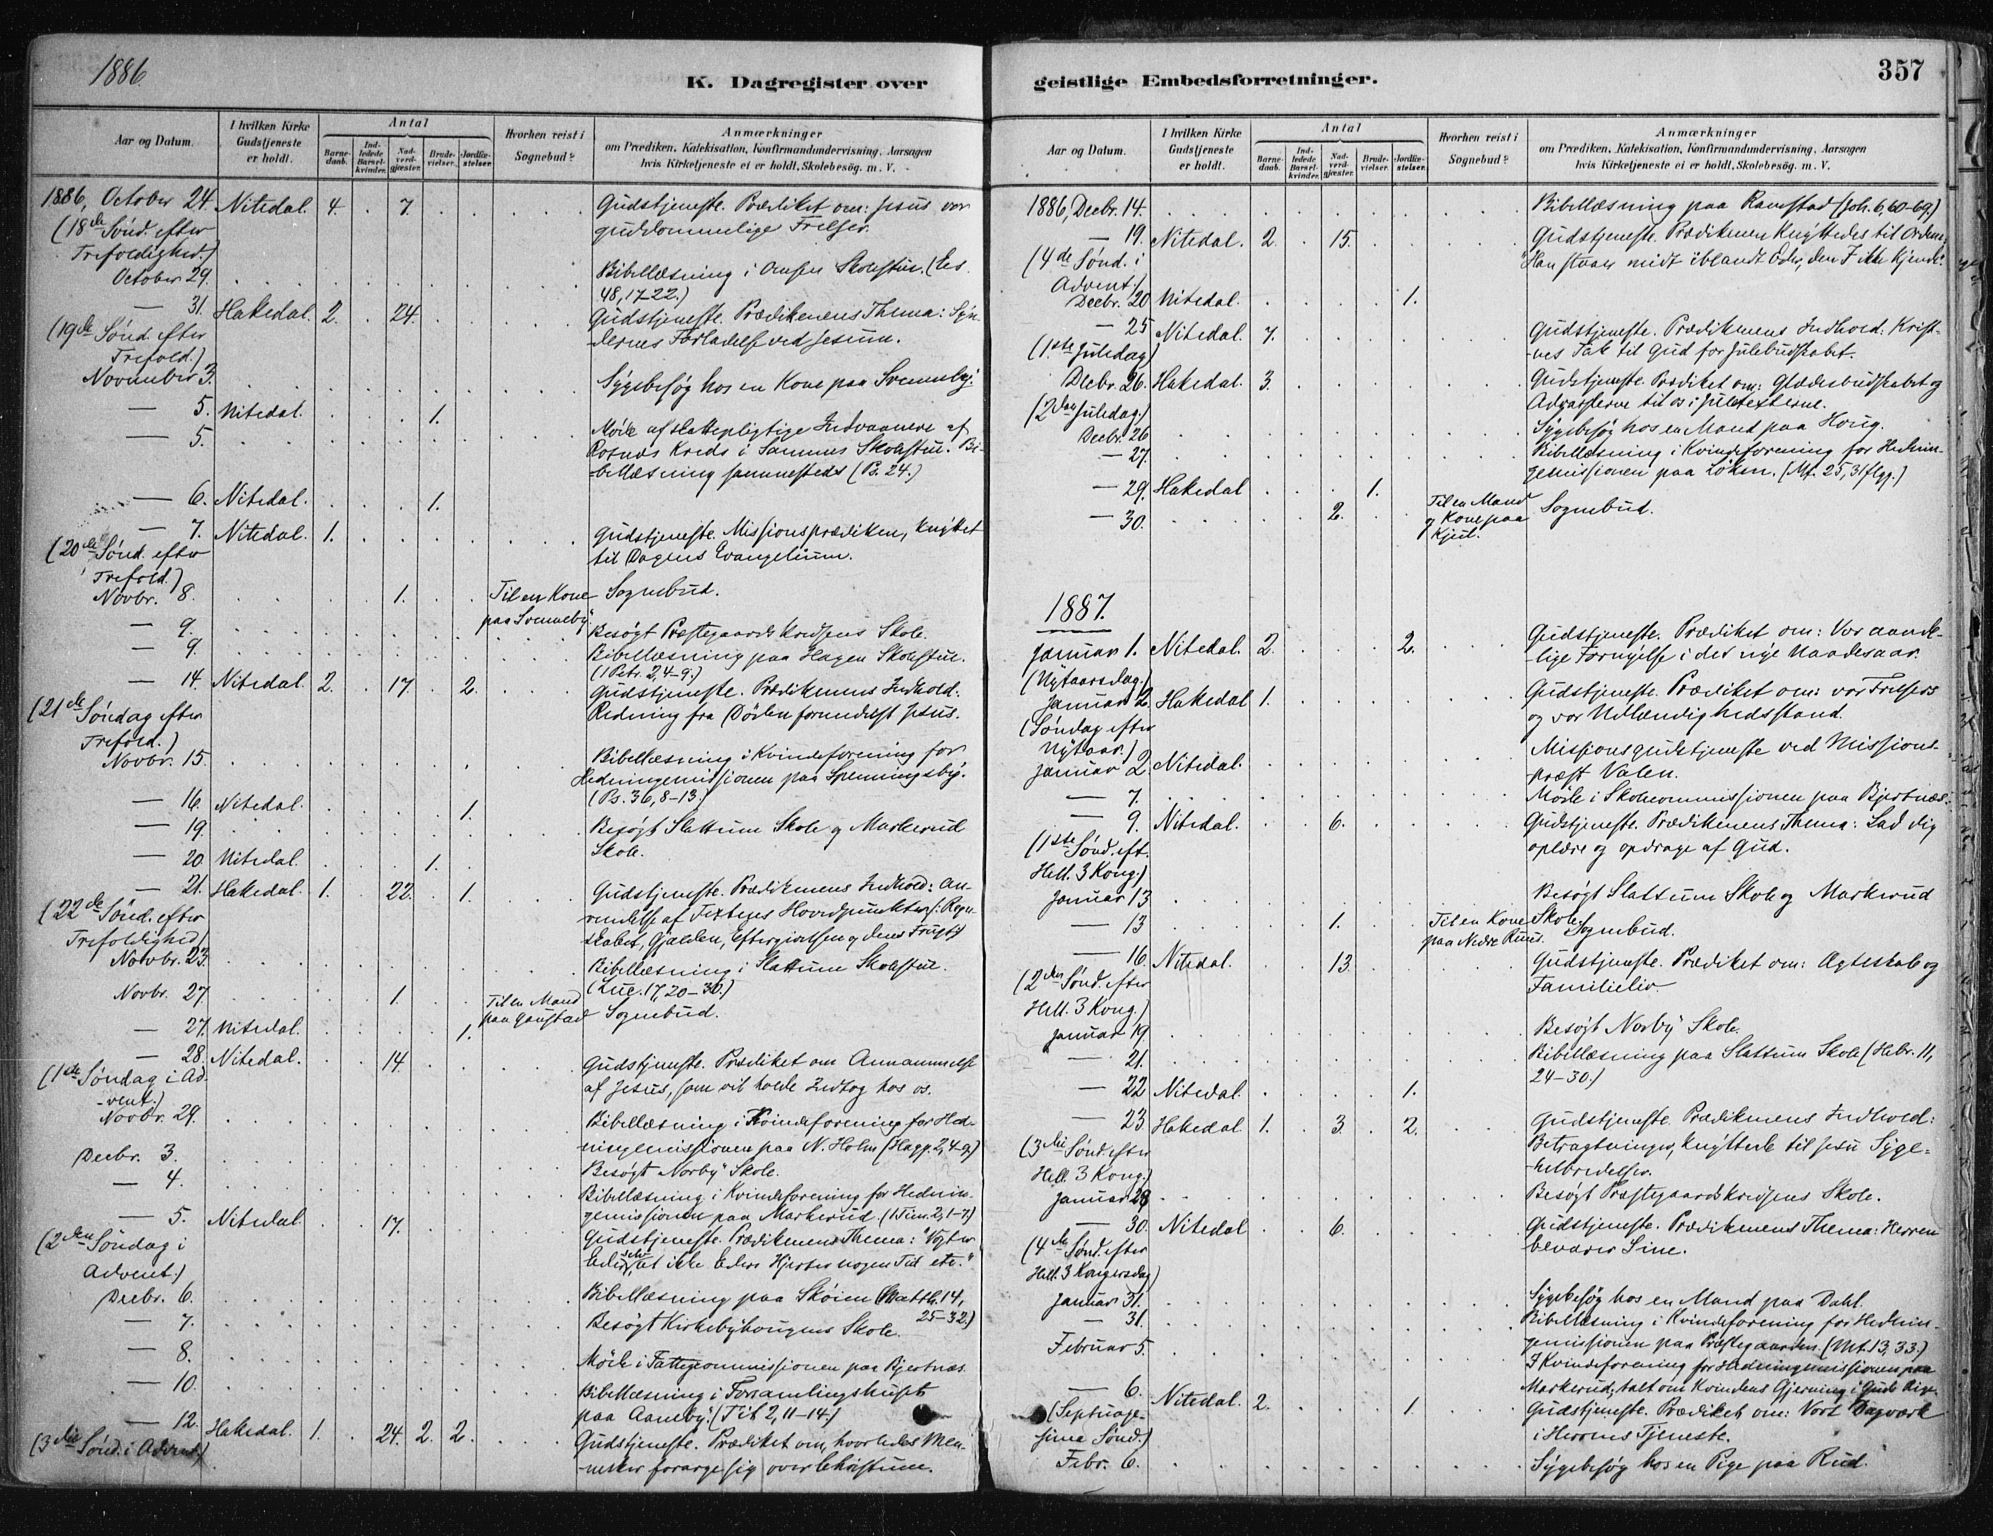 1886.
K. Dagregister over
Aar og Datum.
I hvilken Kirke Gudstjeneste er holdt.
Antal
Barnedaab.
Indledede Barselkvinder.
Nadverdgjæster.
Brudevielser.
Jordfæstelser.
Hvorhen reist i Sognebud?
Anmærkninger
om Prædiken, Katekisation, Konfirmandundervisning, Aarsagen
hvis Kirketjeneste ei er holdt, Skolebesög. m. V.
1886, October 24. Nitedal. 4. 7. Gudstjeneste. Prædiket om: Jesus vor
(18de Sønd. efter guddommelige Frelser.
Trefoldighed.)
October 29. Bibellæsning i Skolestue. (Es.
48, 17-22.)
— 31. Hakedal. 2. 24. Gudstjeneste. Prædikenens Thema: Syn-
(19de Sønd. efter dernes Forladelse ved Jesum.
Trefold.)
November 3. Sygebesøg hos en Kone paa Svenneby.
— 5. Nitedal. 1.
— 5. Møde af skattepligtige Indvaanere af
Rotnes Kreds i Sammes Skolestue. Bi-
bellæsning sammesteds (Ps. 24.)
— 6. Nitedal. 1.
— 7. Nitedal. 1. Gudstjeneste. Missionsprædiken, knyttet
(20de Sønd. efter til Dagens Evangelium.
Trefold.)
Novbr. 8. 1. Til en Kone paa Svenneby Sognebud.
— 9. Besøgt Præstegaards Kredsens Skole.
— 9. Bibellæsning paa Hagen Skolestue.
(1 Petr. 2, 4-9.)
— 14. Nitedal. 2. 17. 2. Gudstjeneste. Prædikenens Indhold:
(21de Søndag efter Redning fra Døden formedelst Jesus.
Trefold.)
Novbr. 15. Bibellæsning i Kvindeforening for
Hedningemissionen paa Spenningsby.
(Ps. 36, 8-13.)
— 16. Nitedal. 1.
— 19. Besøgt Slattum Skole og Markerud
Skole.
— 20. Nitedal. 1.
— 21. Hakedal. 1. 22. 1. Gudstjeneste. Prædikenens Indhold: An-
(22de Sønd. efter vendelse af Textens Hovedpunkter (: Regn-
Trefoldighed) skabet, Gjælden, Eftergivelsen og dens Frugt:)
Novbr. 23. Bibellæsning i Slattum Skolestue.
(Luc. 17, 20-30.)
Novbr. 27. 1. Til en Mand paa Gaustad Sognebud.
— 27. Nitedal. 1.
— 28. Nitedal. 14. Gudstjeneste. Prædiket om Annammelse
(1ste Søndag i Ad- af Jesus, som vil holde Indtog hos os.
-vent.)
Novbr. 29. Bibellæsning i Kvindeforening for Hed-
ningemissionen paa N. Holm (Hagg. 2, 4-9)
Decbr. 3. Besøgt Norby Skole.
— 4. Bibellæsning i Kvindeforening for Hednin-
gemissionen paa Markerud. (1 Tim. 2, 1-7.)
— 5. Nitedal 17. Gudstjeneste. Prædikenens Thema: "Vogter
(2den Søndag i Eder, at ikke Eders Hjerter nogen Tid etc."
Advent.)
Decbr. 6. Bibellæsning paa Skøien (Matth. 14,
25-32.)
— 7. Besøgt Kirkebyhougens Skole.
— 8. Møde i Fattigcommissionen paa Bjertnæs.
— 10. Bibellæsning i Forsamlingshuset
paa Aaneby. (Tit. 2, 11-14.)
— 12. Hakedal. 1. 24. 2. 2. Gudstjeneste. Prædiket om, hvorledes Men-
(3die Sønd. i Advent.) nesker forarge sig over Christum.
geistlige Embedsforretninger.
357
Aar og Datum.
I hvilken Kirke Gudstjeneste er holdt.
Antal
Barnedaab.
Indledede Barselkvinder.
Nadverdgjæster.
Brudevielser.
Jordfæstelser.
Hvorhen reist i Sognebud?
Anmærkninger
om Prædiken, Katekisation, Konfirmandundervisning, Aarsagen
hvis Kirketjeneste ei er holdt, Skolebesög. m. V.
1886, Decbr. 14. Bibellæsning paa Ramstad (Joh. 6, 60-69.)
— 19. Nitedal. 2. 15. Gudstjeneste. Prædikenen knyttedes til Ordene:
(4de Sønd. i "Han staar midt iblandt Eder, den I ikke kjende".
Advent.)
Decbr. 20 Nitedal. 1.
— 25 Nitedal. 7. Gudstjeneste. Prædikenens Indhold: Krist-
(1ste Juledag) nes Tak til Gud for Julebudskabet.
Decbr. 26. Hakedal. 3. Gudstjeneste. Prædiket om: Glædesbudskabet og
(2den Juledag.) Advarslerne til os i Juletexterne.
Decbr. 26 Sygebesøg hos en Mand paa Houg.
— 27. Bibellæsning i Kvindeforening for Hednin-
gemissionen paa Løken. (Mt. 25, 31 flgg.)
— 29. Hakedal 1.
— 30. 2. Til en Mand og Kone paa Kjul. Sognebud.
1887.
Januar 1. Nitedal. 2. 2. Gudstjeneste. Prædiket om: Vor aande-
(Nytaarsdag.) lige Fornyelse i det nye Naadesaar.
Januar 2. Hakedal 1. Gudstjeneste. Prædiket om: vor Frelsers
(Søndag efter og vor Udlændighedsstand.
Nytaar.)
Januar 2. Nitedal. Missionsgudstjeneste ved Missions-
præst Valen.
— 7. Møde i Skolecommissionen paa Bjertnæs.
— 9. Nitedal. 6. Gudstjeneste. Prædikenens Thema: Lad dig
(1ste Sønd. eft. oplære og opdrage af Gud.
Hell. 3 Kong.)
Januar 13 Besøgt Slattum Skole og Markerud
Skole.
— 13 1. Til en Kone paa Nedre Ruud. Sognebud.
— 16. Nitedal. 13. Gudstjeneste. Prædiket om: Ægteskab og
(2den Sønd. efter Familieliv.
Hell. 3 Kong.)
Januar 19. Besøgt Norby Skole.
— 21. Bibellæsning paa Slattum Skole (Hebr. 11,
24-30.)
— 22 Nitedal. 1.
— 23. Hakedal 1. 3. 2. Gudstjeneste. Prædikenens Indhold:
(3die Sønd. efter Betragtninger, knyttede til Jesu Syge-
Hell. 3 Kong.) helbredelser.
Januar 28 Besøgt Præstegaardskredsens Skole.
— 30. Nitedal 6. Gudstjeneste. Prædikenens Thema: Herren
(4de Sønd. efter bevarer Sine.
Hell. 3 Kongersdag)
Januar 31. Sygebesøg hos en Mand paa Dahl.
— 31. Bibellæsning i Kvindeforening for Hednin-
gemissionen paa Præstegaarden. (Mt. 13, 33.)
Februar 5. I Kvindeforening for Hedningemissionen paa
Markerud, talt om Kvindens Gjerning i Guds Rige.
— 6. Nitedal. 2. 1. Gudstjeneste. Prædiket om: Vort Dagværk
(Septuage- i Herrens Tjeneste.
sima Sønd.)
Febr. 6. Sygebesøg hos en Pige paa Rud.